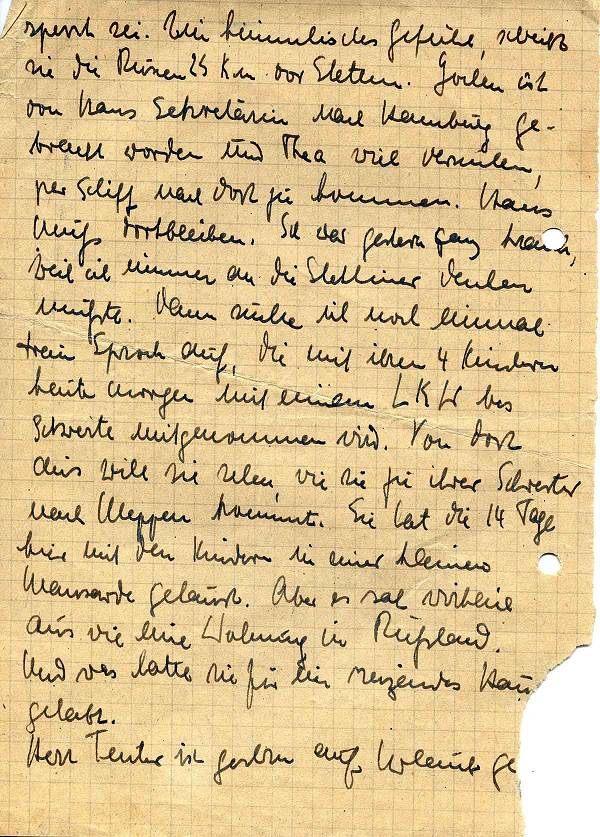 sperrt sei. Ein himmlisches Gefühl, schreibt
sie die Russen 25 Km vor Stettin. Gorlen ist
von Hans Sekretärin nach Hamburg ge-
bracht worden und Thea will versuchen,
per Schiff nach dort zu kommen. Hans
muß dortbleiben. Ich war gestern ganz krank,
weil ich immer an die Stettiner denken
mußte. Dann suchte ich noch einmal
Frau Sprock auf, die mit ihren 4 Kindern
heute morgen mit einem LKW bis
Schwerte mitgenommen wird. Von dort
aus will sie sehen, wie sie zu ihrer Schwester
nach Meppen kommt. Sie hat die 14 Tage
hier mit den Kindern in einer kleinen
Mansarde gehaust. Aber es sah
aus wie eine Wohnung in Rußland.
Und was hatte sie für ein reizendes Hau
gehabt.
Herr ist gestern auf Urlaub ge